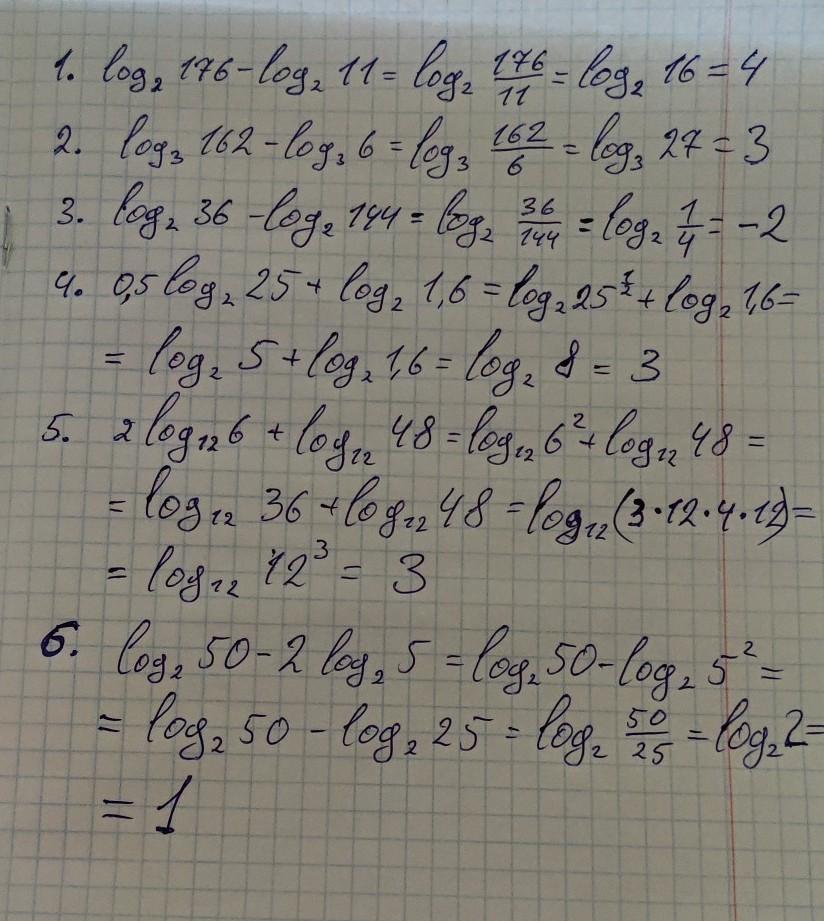 1. log₂ 176 - log₂ 11 = log₂ 176/11 = log₂ 16 = 4
2. log₃ 162 - log₃ 6 = log₃ 162/6 = log₃ 27 = 3
3. log₂ 36 - log₂ 144 = log₂ 36/144 = log₂ 1/4 = -2
4. 0,5 log₂ 25 + log₂ 1,6 = log₂ 25^(1/2) + log₂ 1,6 =
= log₂ 5 + log₂ 1,6 = log₂ 8 = 3
5. 2 log₁₂ 6 + log₁₂ 48 = log₁₂ 6² + log₁₂ 48 =
= log₁₂ 36 + log₁₂ 48 = log₁₂ (3·12·4·12) =
= log₁₂ 12³ = 3
6. log₂ 50 - 2 log₂ 5 = log₂ 50 - log₂ 5² =
= log₂ 50 - log₂ 25 = log₂ 50/25 = log₂ 2 =
= 1